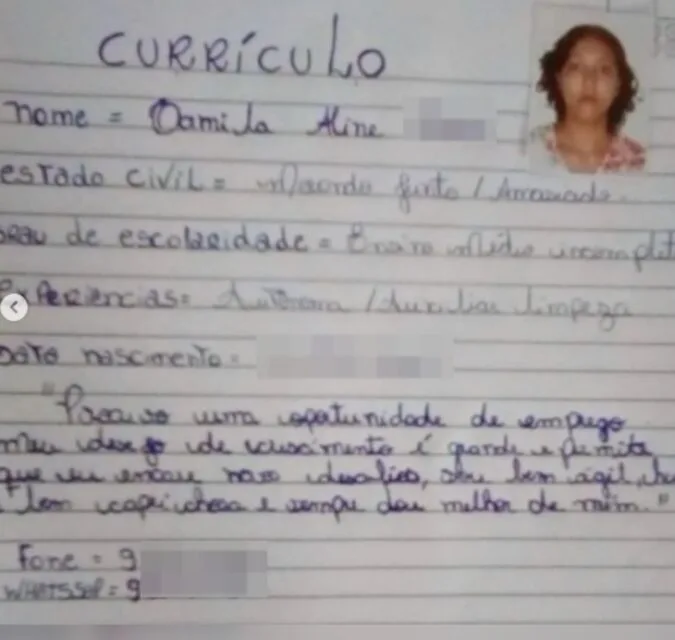 CURRÍCULO
nome = Damila Aline
estado civil = Morando junto / Amasiado
grau de escolaridade = Ensino Médio incomplet
experiencias = Autônoma / Auxiliar limpeza
Data nascimento =
"Preciso uma opotunidade de emprego,
meu desejo de crescimento é grande e permite
que eu encare novo desafios, sou bem ágil,
bem caprichosa e sempre dou melhor de mim."
Fone = 9
WHATSSAP = 9